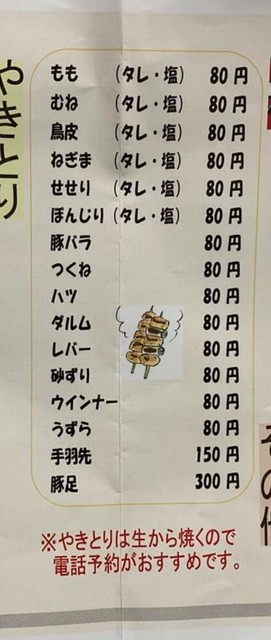 やきとり
もも (タレ・塩) 80円
むね (タレ・塩) 80円
鳥皮 (タレ・塩) 80円
ねぎま (タレ・塩) 80円
せせり (タレ・塩) 80円
ぼんじり (タレ・塩) 80円
豚バラ 80円
つくね 80円
ハツ 80円
ダルム 80円
レバー 80円
砂ずり 80円
ウインナー 80円
うずら 80円
手羽先 150円
豚足 300円
※やきとりは生から焼くので
電話予約がおすすめです。
その他